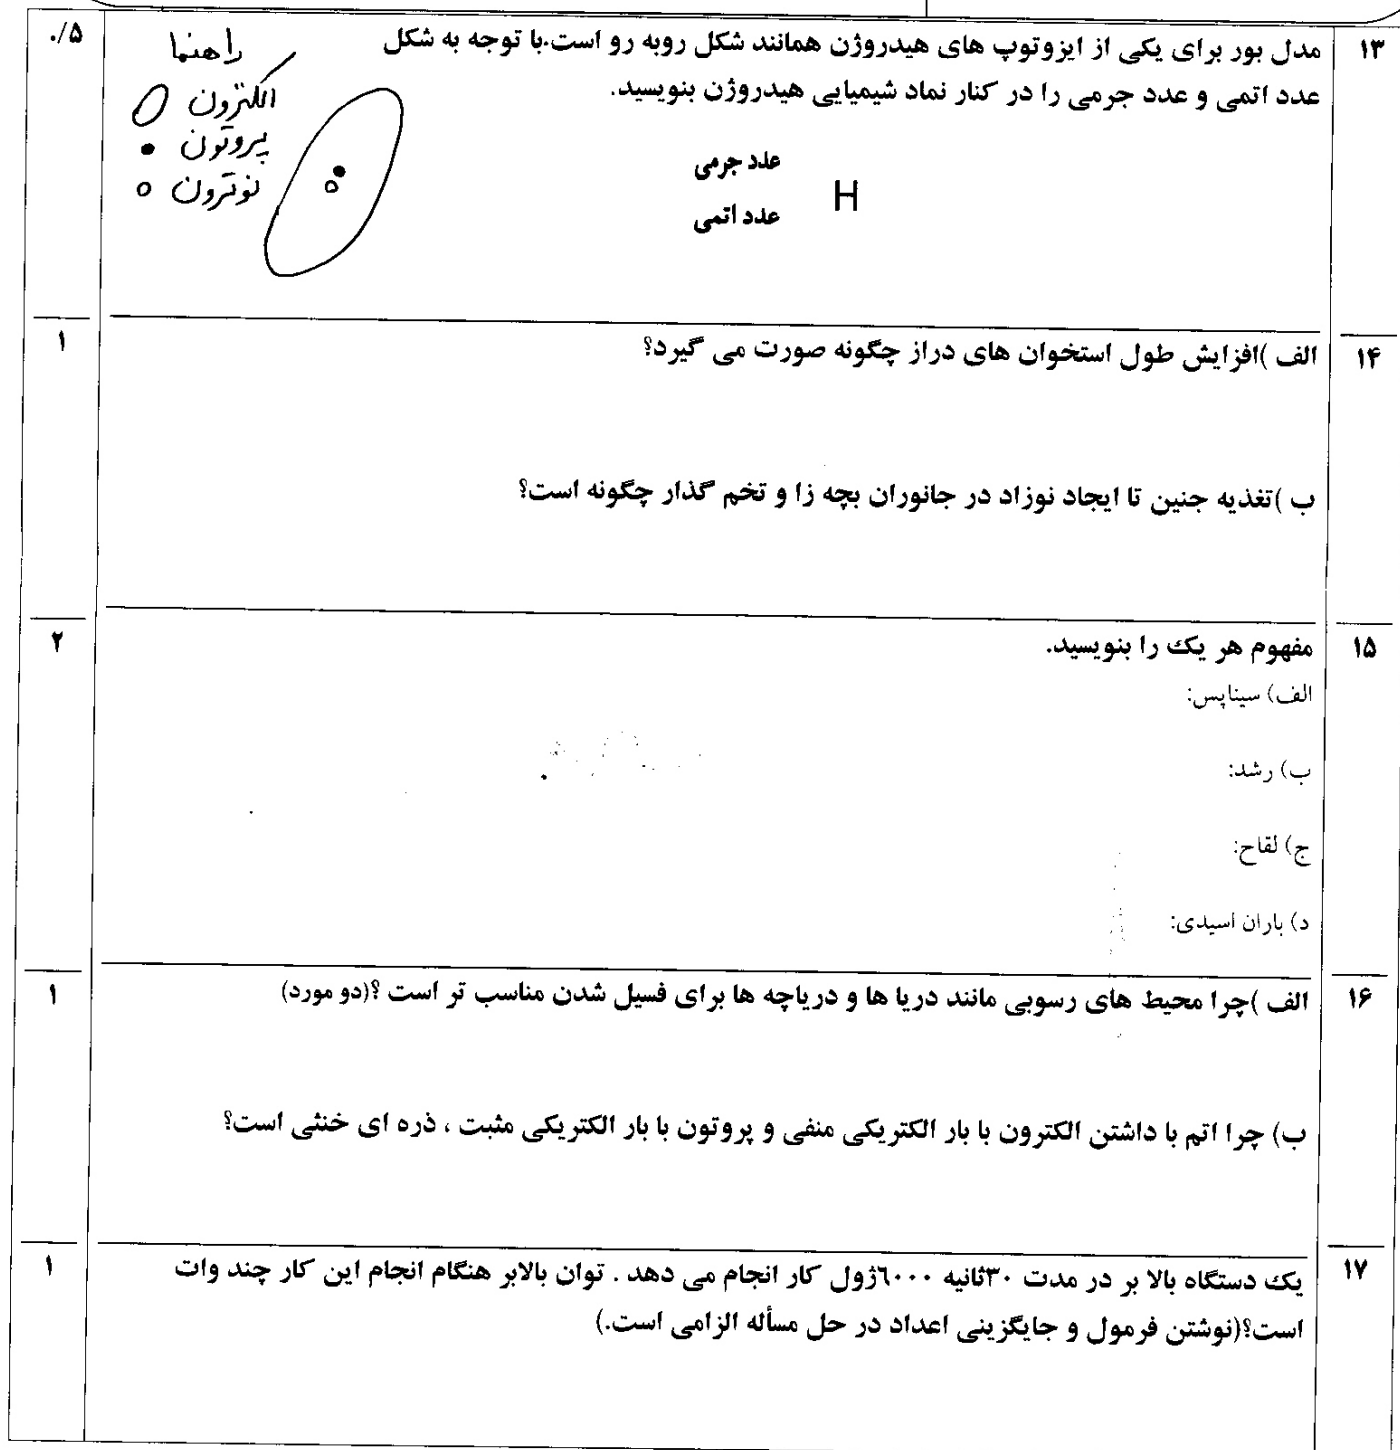 ۱۳
مدل بور برای یکی از ایزوتوپ های هیدروژن همانند شکل روبه رو است.با توجه به شکل
عدد اتمی و عدد جرمی را در کنار نماد شیمیایی هیدروژن بنویسید.
۰/۵
راهنما
الکترون
پروتون
نوترون
عدد جرمی
H
عدد اتمی
۱۴
الف )افزایش طول استخوان های دراز چگونه صورت می گیرد؟
۱
ب )تغذیه جنین تا ایجاد نوزاد در جانوران بچه زا و تخم گذار چگونه است؟
۱۵
مفهوم هر یک را بنویسید.
۲
الف) سیناپس:
ب) رشد:
ج) لقاح:
د) باران اسیدی:
۱۶
الف )چرا محیط های رسوبی مانند دریا ها و دریاچه ها برای فسیل شدن مناسب تر است ؟(دو مورد)
۱
ب) چرا اتم با داشتن الکترون با بار الکتریکی منفی و پروتون با بار الکتریکی مثبت ، ذره ای خنثی است؟
۱۷
یک دستگاه بالا بر در مدت ۳۰ثانیه ٦۰۰۰ژول کار انجام می دهد . توان بالابر هنگام انجام این کار چند وات
۱
است؟(نوشتن فرمول و جایگزینی اعداد در حل مسأله الزامی است.)